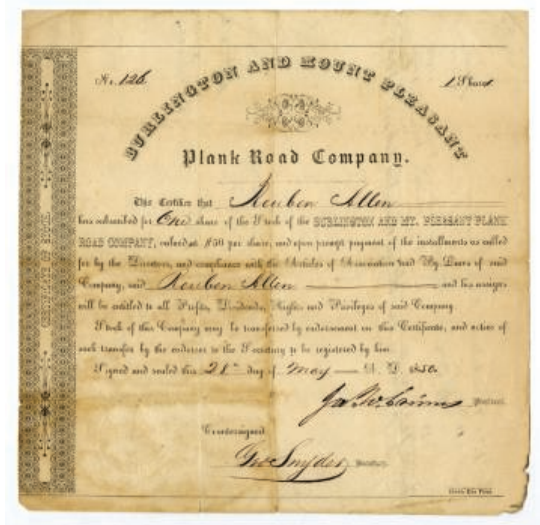 No. 126.
1 Share
BURLINGTON AND MOUNT PLEASANT
Plank Road Company.
This Certifies that Reuben Allen
has subscribed for One share of the Stock of the BURLINGTON AND MT. PLEASANT PLANK
ROAD COMPANY, valued at $50 per share, and upon prompt payment of the installments as called
for by the Directors, and compliance with the Articles of Association and By Laws of said
Company, said Reuben Allen and his assigns
will be entitled to all Profits, Dividends, Rights and Privileges of said Company.
Stock of this Company may be transferred by endorsement on this Certificate, and notice of
such transfer by the endorser to the Secretary to be registered by him.
Signed and sealed this 28th day of May A. D. 1850.
President.
Countersigned
Geo Snyder Secretary.
CERTIFICATE OF STOCK